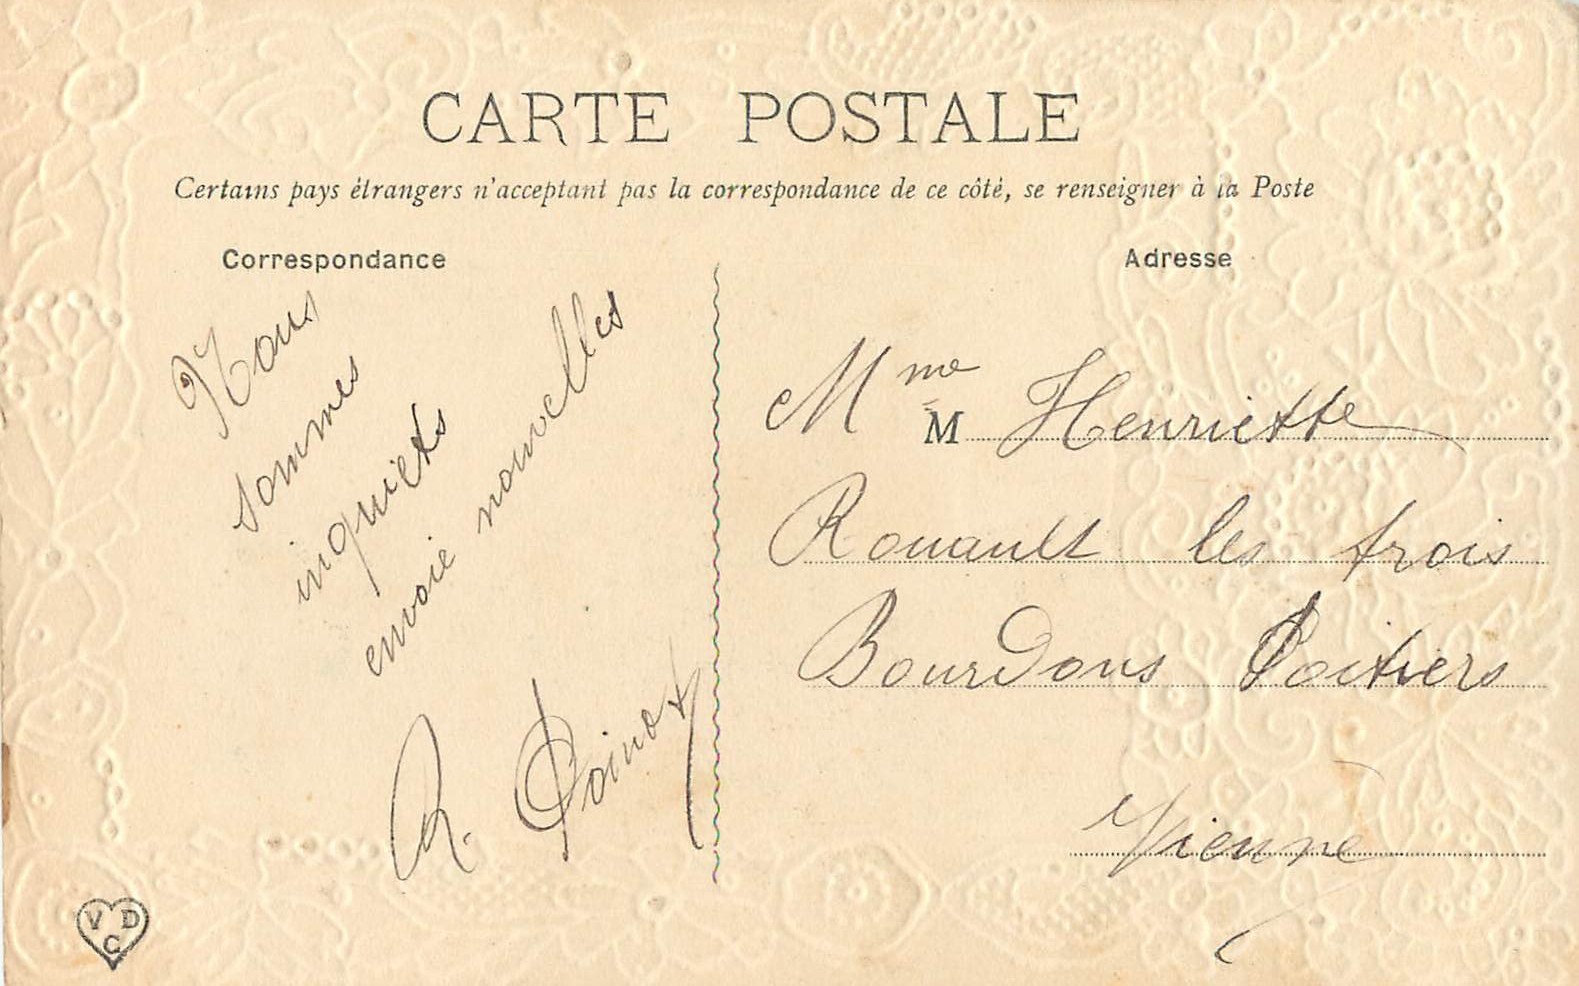 CARTE POSTALE
Certains pays étrangers n'acceptant pas la correspondance de ce côté, se renseigner à la Poste
Correspondance
Nous
sommes
inquiets
envoie nouvelles
R. Poinot
Adresse
Mme
M Henriette
Rouault les trois
Bourdons Poitiers
Vienne
V D
C